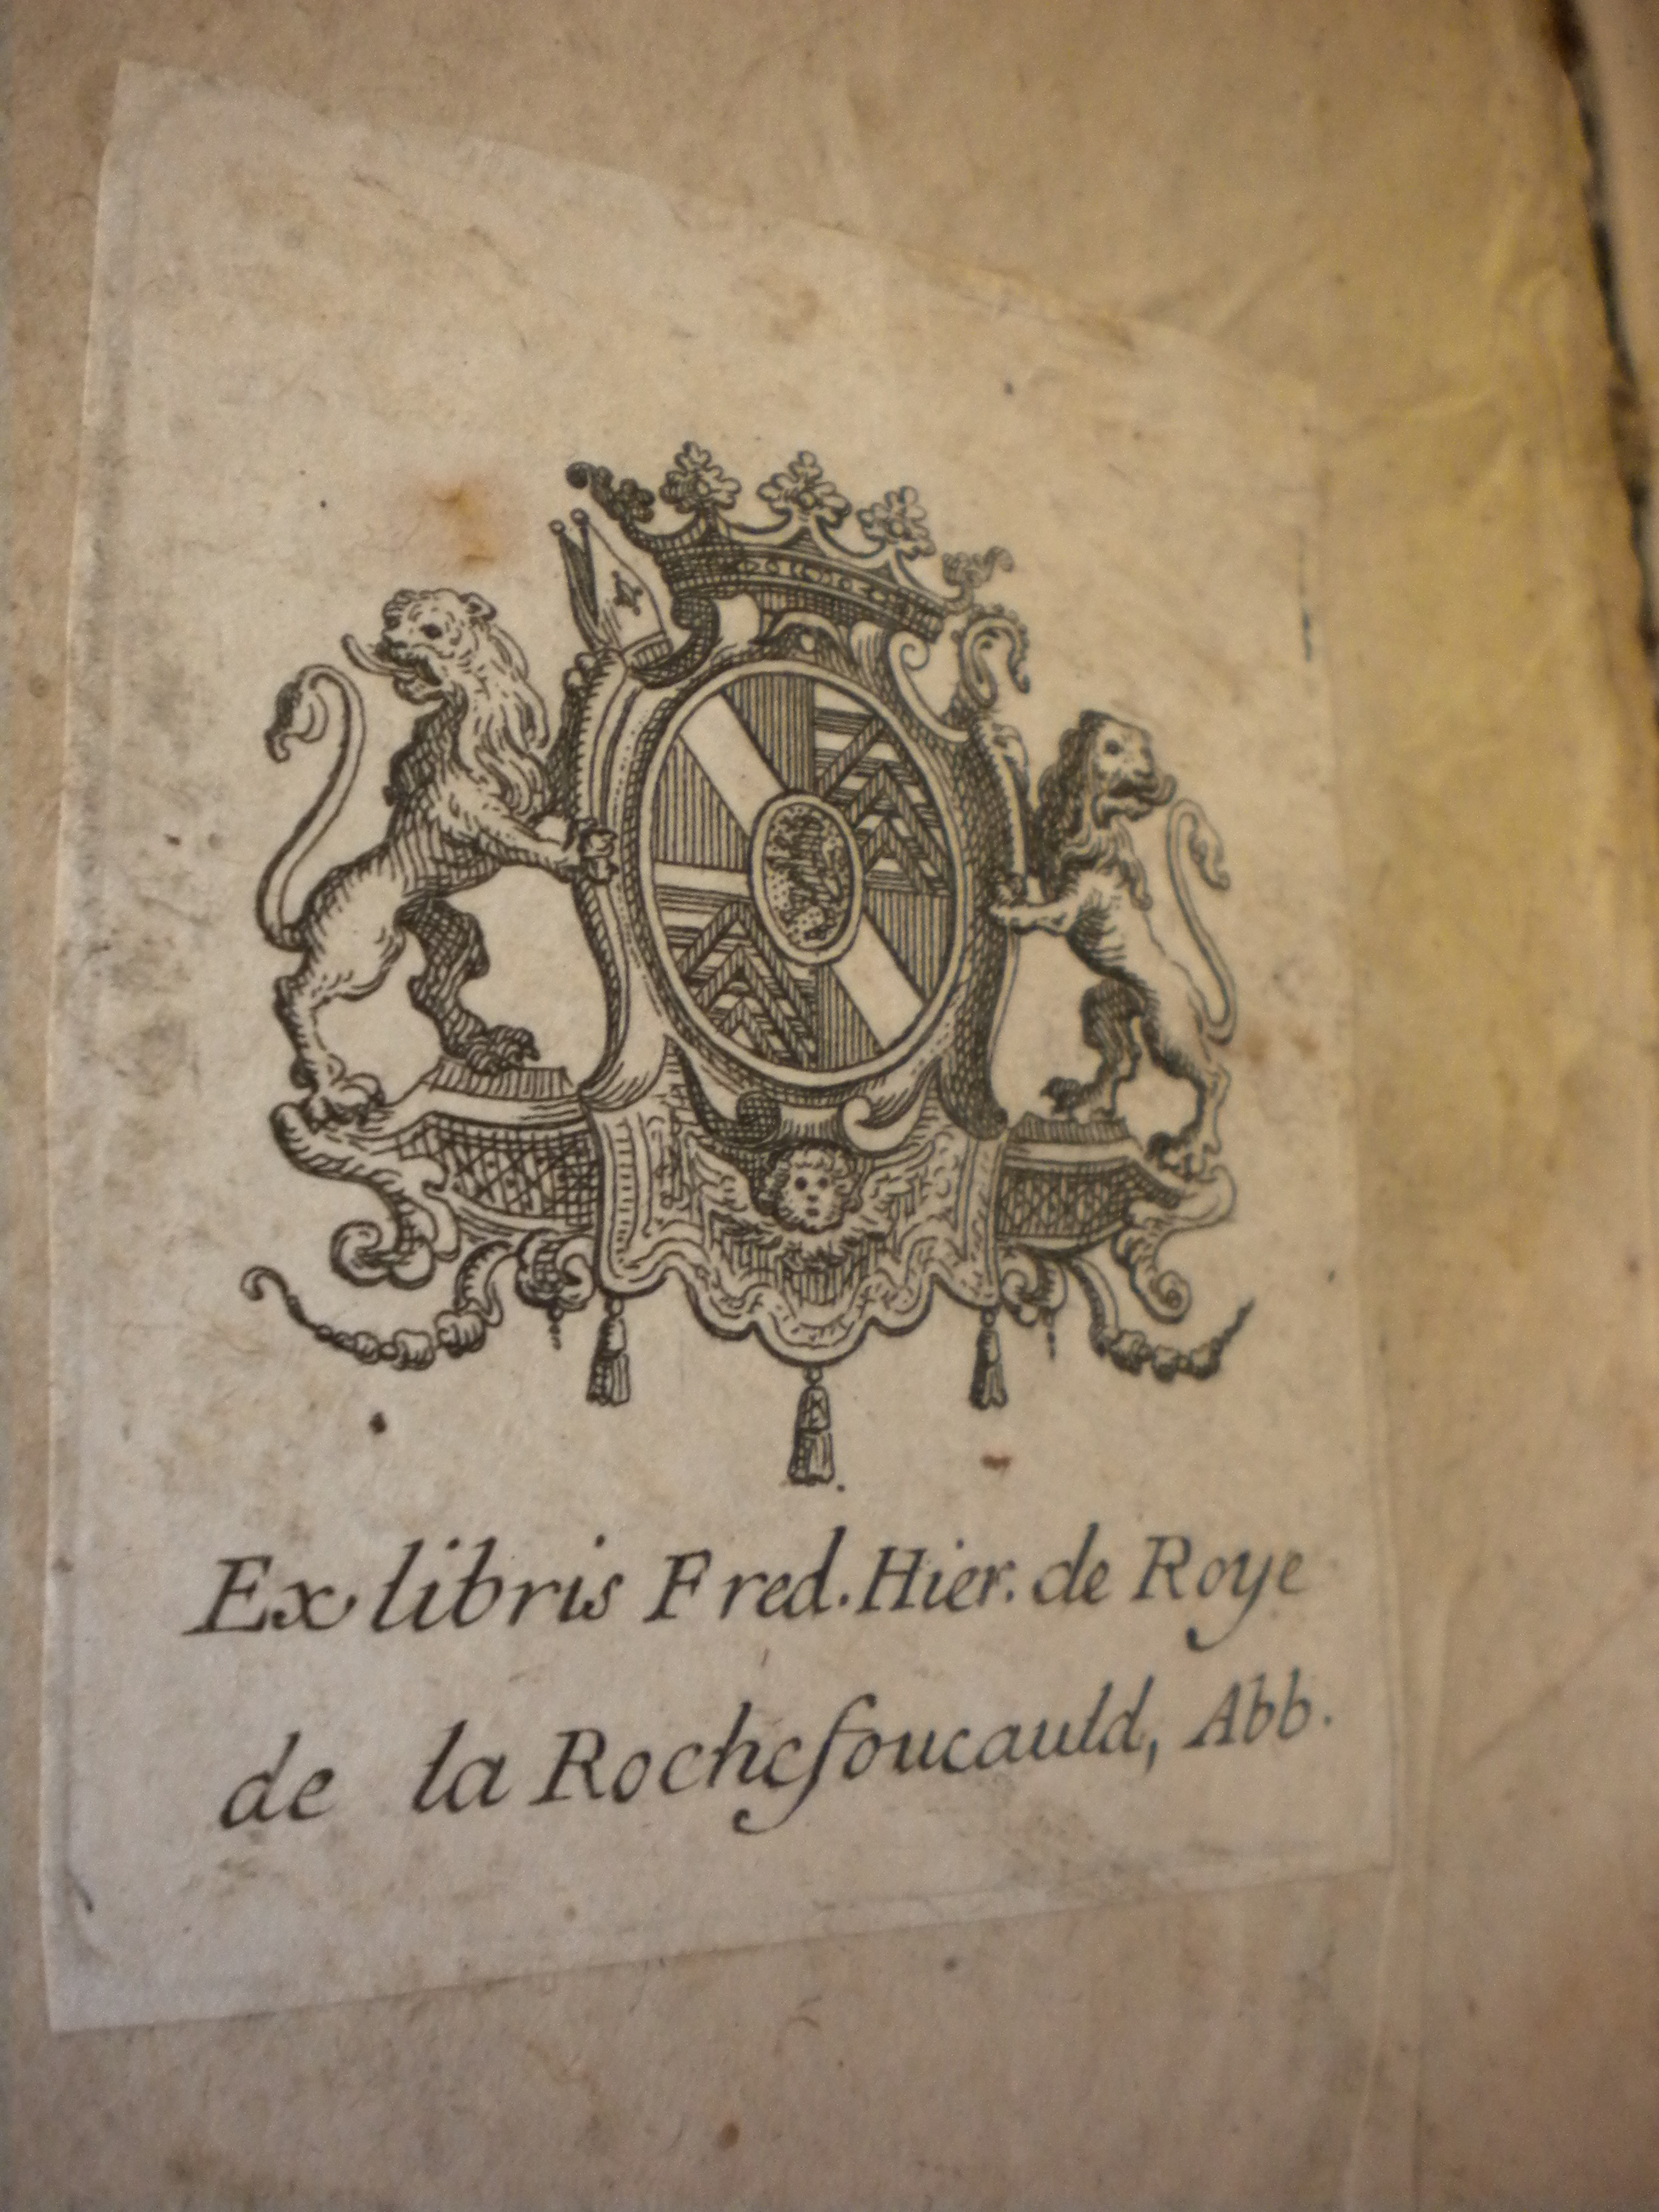 Ex libris Fred. Hier. de Roye
de la Rochefoucauld, Abb.